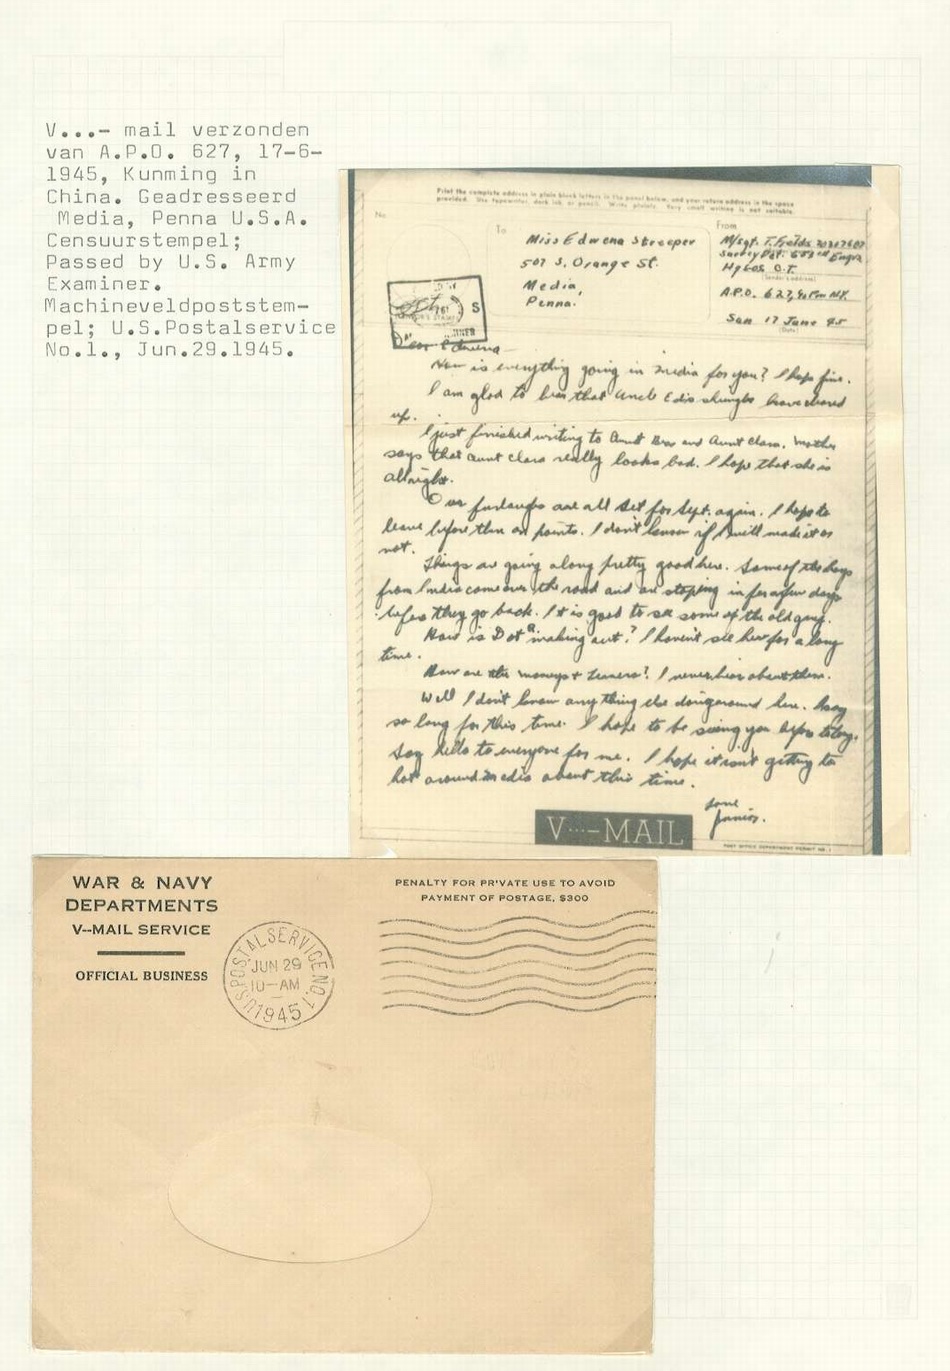 V...- mail verzonden
van A.P.O. 627, 17-6-
1945, Kunming in
China. Geadresseerd
Media, Penna U.S.A.
Censuurstempel;
Passed by U.S. Army
Examiner.
Machineveldpoststem-
pel; U.S.Postalservice
No.1., Jun.29.1945.
Print the complete address in plain block letters in the panel below, and your return address in the space
provided. Use typewriter, dark ink, or pencil. Write plainly. Very small writing is not suitable.
No.
To
From
Miss Edwena Streeper
507 S. Orange St.
Media,
Penna.
M/sgt. T. Fields
Survey Det.
Hq SOS C.T.
(Sender's address)
A.P.O. 627, % P.M. N.Y.
Sun 17 June 45
(Date)
Dear Edwena
How is everything going in Media for you? I hope fine.
I am glad to hear that Uncle Eds shingles have cleared
up.
I just finished writing to Aunt and Aunt Clara. Mother
says that Aunt Clara really looks bad. I hope that she is
allright.
Our furloughs are all set for Sept. again. I hope to
leave before then on points. I don't know if I will make it or
not.
Things are going along pretty good here. Some of the boys
from India come over the road and are stoping in for a few days
before they go back. It is good to see some of the old gang.
How is Dot making out? I haven't see her for a long
time.
How are the & ? I never hear about them.
Well I don't know any thing else doing around here.
so long for this time. I hope to be seeing you before to long.
Say hello to everyone for me. I hope it isn't getting to
hot around Media about this time.
Love
Junior.
V···—MAIL
POST OFFICE DEPARTMENT PERMIT NO. 1
WAR & NAVY
DEPARTMENTS
V--MAIL SERVICE
OFFICIAL BUSINESS
PENALTY FOR PRIVATE USE TO AVOID
PAYMENT OF POSTAGE, $300
U.S. POSTAL SERVICE NO. 1
JUN 29
10-AM
1945